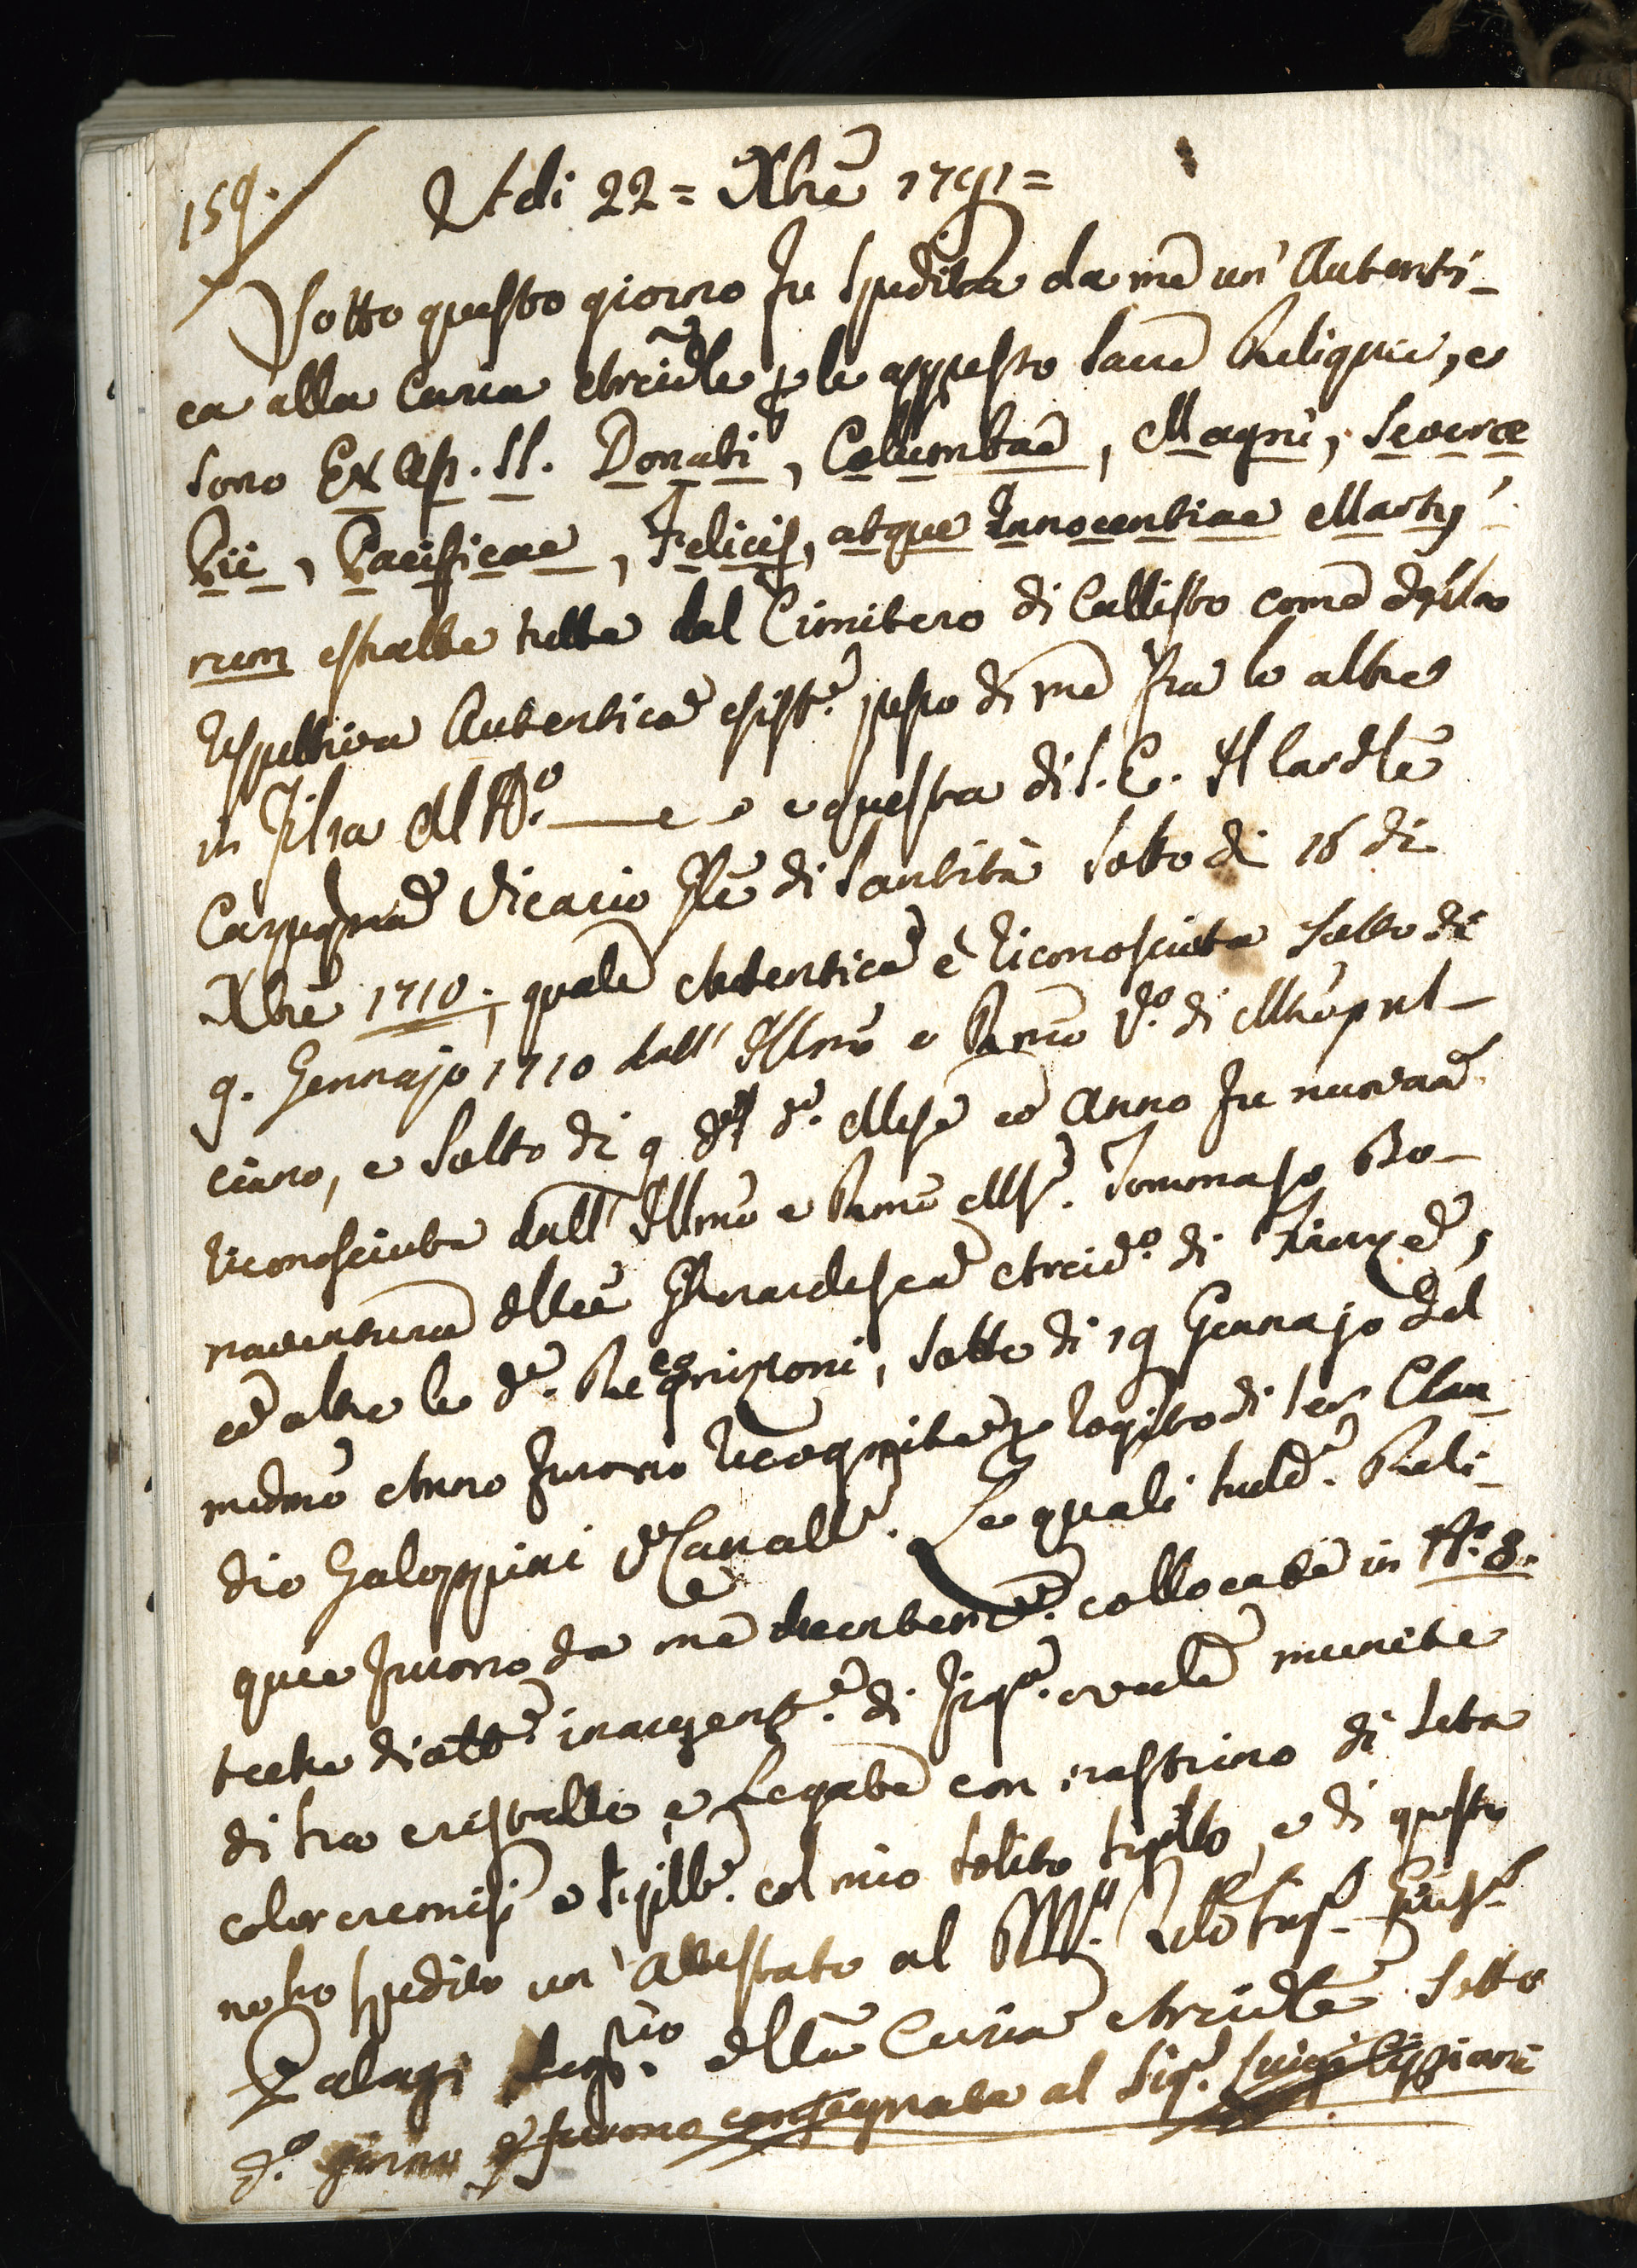 159.
Adi 22 = Xbre 1791 =
Sotto questo giorno fu spedita da me un' Autenti-
ca alla Curia Arcivle p le appresso Sacre Reliquie, e
sono Ex Oss. SS. Donati, Columbae, Magni, Severae
Pii, Pacificae, Felicis, atque Innocentiae Marty-
rum estratte tutte dal Cimitero di Callisto come da
respettiva Autentica esist.e presso di me fra le altre
in filza al N.o e e questa di S. E. Il Cardle
Carpegna Vicario Gle di Santità sotto di 16 di
Xbre 1710. quale Autentica è riconosciuta sotto di
9. Gennajo 1710 dall' Illmo e Rmo V.o di Montepul-
ciano, e sotto di 9 d.o Mese ed Anno fu nuovam.e
riconosciuta dall' Illmo e Rmo Msr. Tommaso Bo-
naventura della Gherardesca Arciv.o di Firenze,
ed oltre le d.e Recognizioni, sotto di 19 Gennajo del
medmo Anno furono recognite p rogito di Ser Clau-
dio Galoppini Canall.e. Le quali tutte Reli-
quie furono da me decentem.e collocate in N.o 8.
teche di ott.e inargent.e di fig.a ovale munite
di tra cristallo e legate con nastrino di seta
color cremisi e sigill.e col mio solito sigillo, e di questo
ne ho spedito un' Attestato al
Palagi della Curia Arcivle sotto
d.o giorno e furono consegnate al Sig.r Luigi